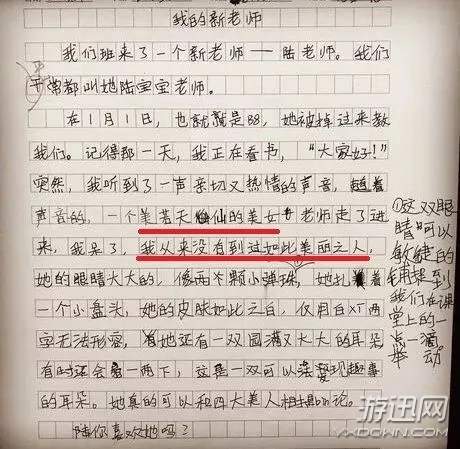 我的新老师
我们班来了一个新老师——陆老师。我们
平常都叫她陆宝宝老师。
在1月1日,也就是88,她被掉过来教
我们。记得那一天,我正在看书,“大家好!”
突然,我听到了一声亲切又热情的声音,趁着
声音的,一个美若天仙的美女老师走了进
来,我呆了,我从来没有到过如此美丽之人,
她的眼睛大大的,像两个颗小弹珠,①她扎着
一个小盘头,她的皮肤如此之白,仅用白XT两
字无法形容,有她还有一双圆满又大大的耳朵
有时还会一两下,这是一双可以发现趣事
的耳朵。她真的可以和四大美人相提论。
陆你喜欢她吗?
①这双眼
睛可以
敏捷的
捕捉到
我们在课
堂上的一
点一滴。
举动
游讯网
YXDOWN.COM